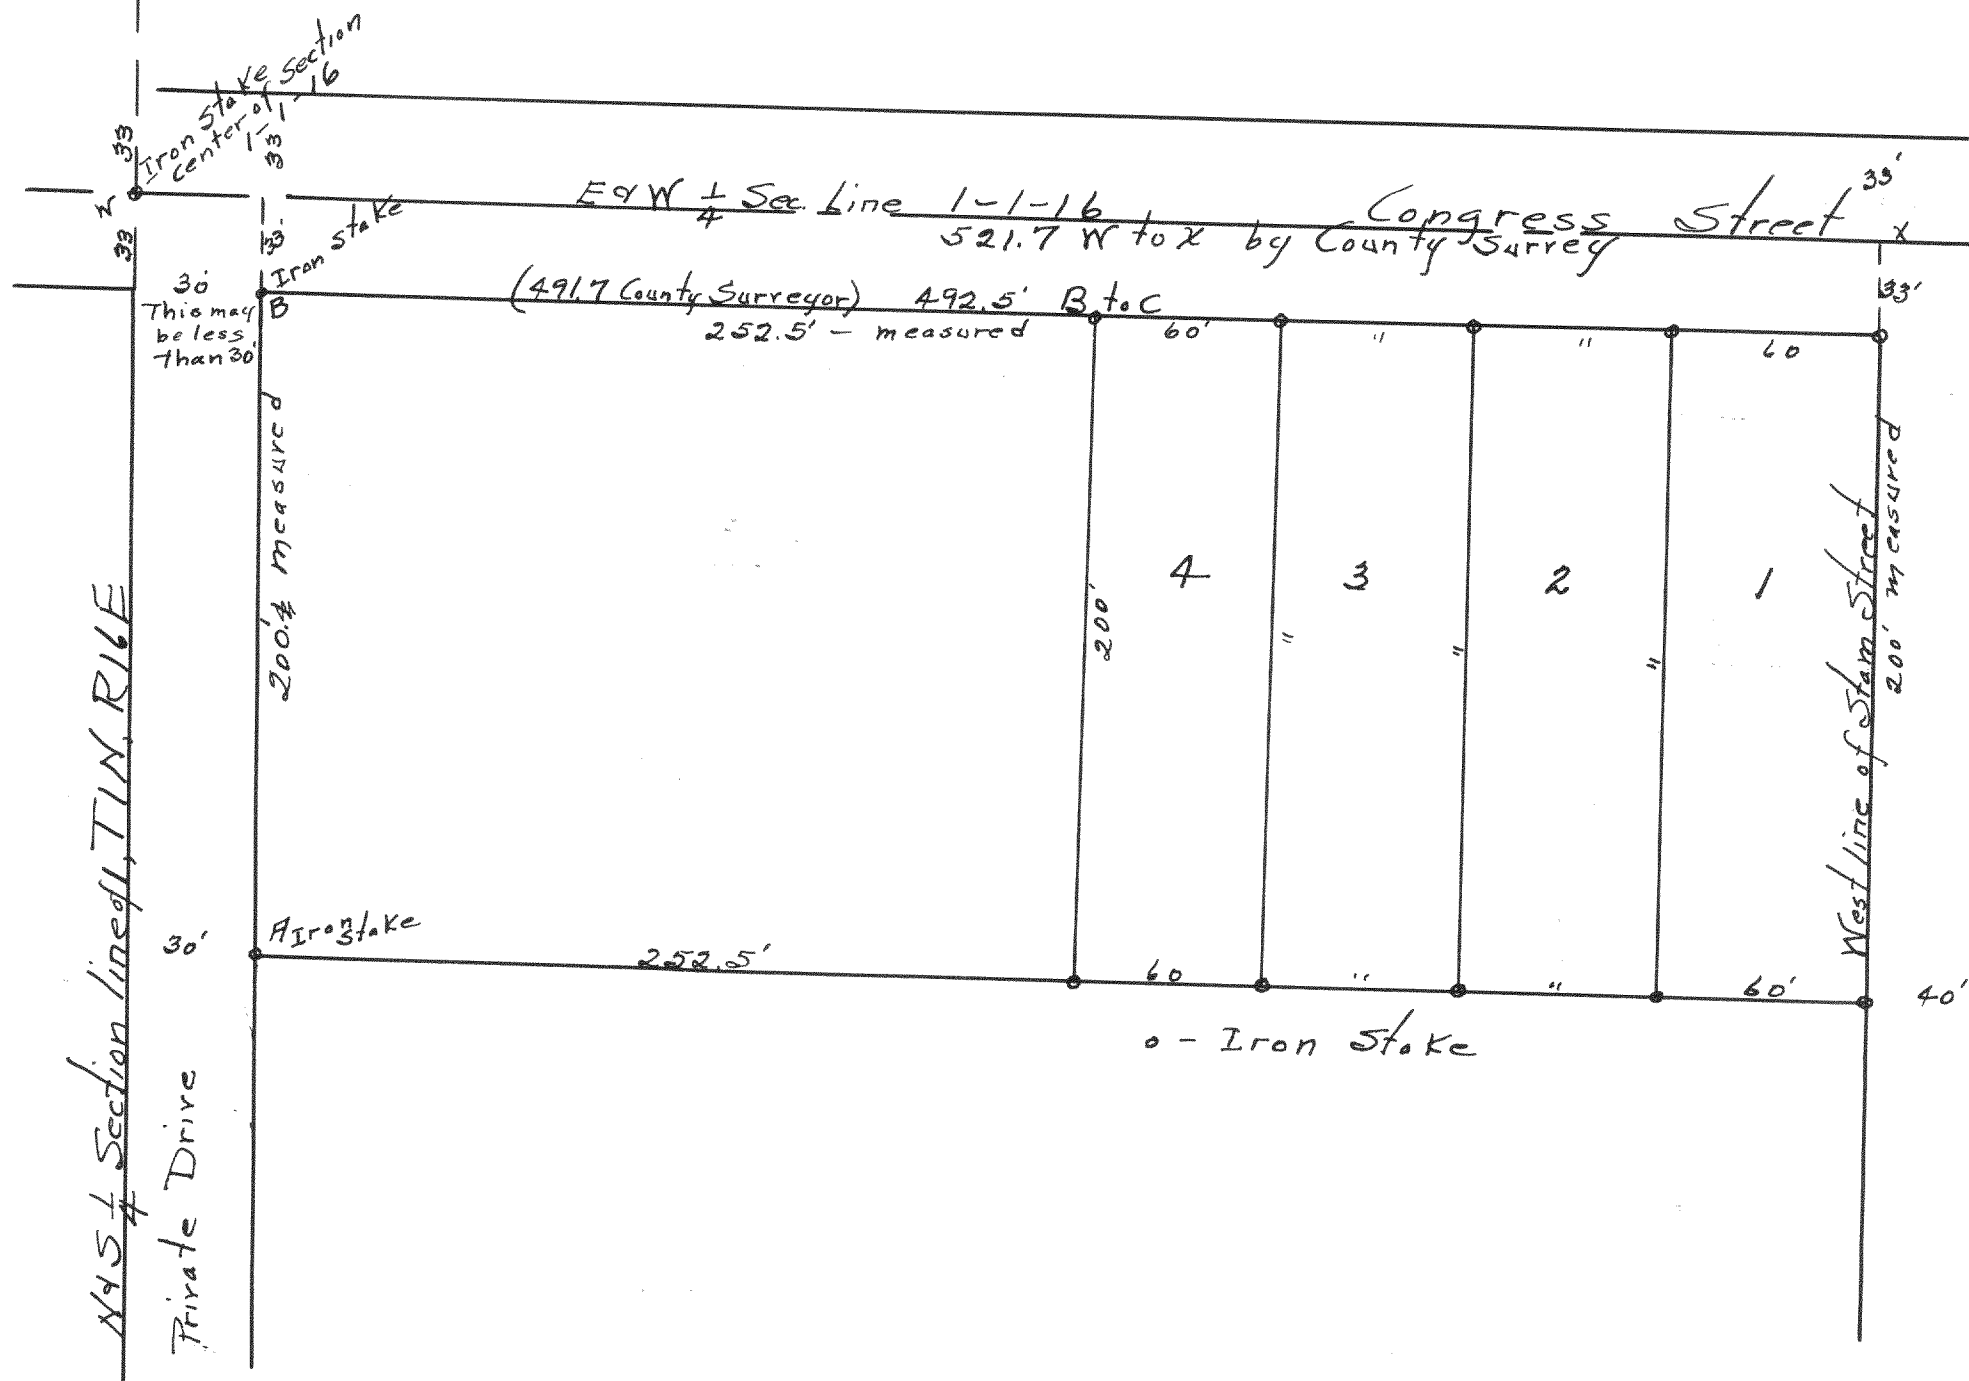 Iron Stake Section
Center of 1-1-16
33
33
33
33'
W
E & W 1/4 Sec. Line 1-1-16
Congress Street
33'
521.7 W to X by County Surrey
X
Iron Stake
30'
This may
be less
than 30'
B
(491.7 County Surveyor) 492.5' B to C
252.5' - measured
60'
"
"
60
33'
200.4' measured
200'
4
3
2
1
"
"
"
West line of Stam Street
200' measured
N & S 1/4 Section line of 1, T1N, R16E
Private Drive
30'
A Iron Stake
252.5'
60
"
"
60'
40'
o - Iron Stake